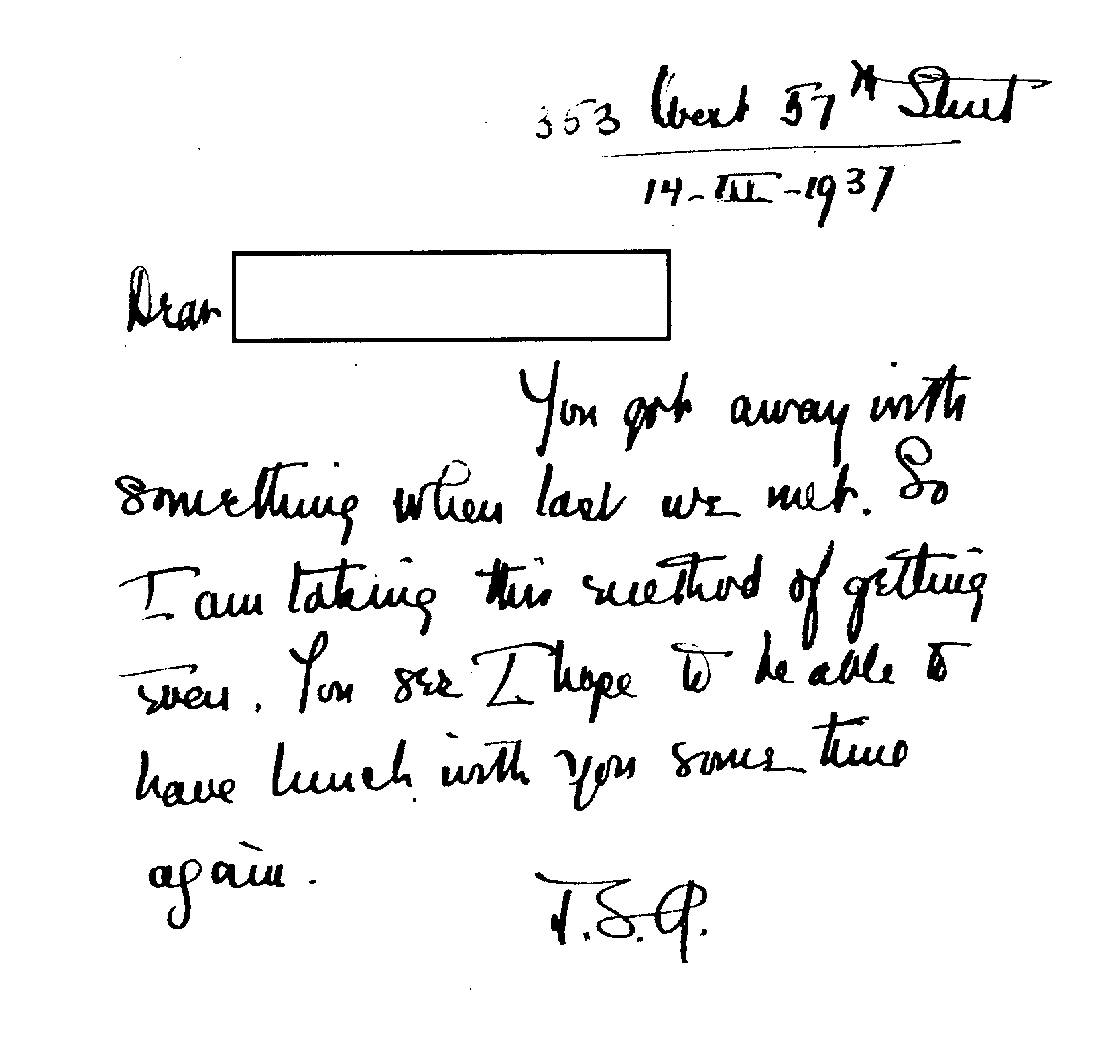 353 West 57th Street
14-III-1937
Dear
You got away with
something when last we met. So
I am taking this method of getting
even. You see I hope to be able to
have lunch with you some time
again.
T.S.A.